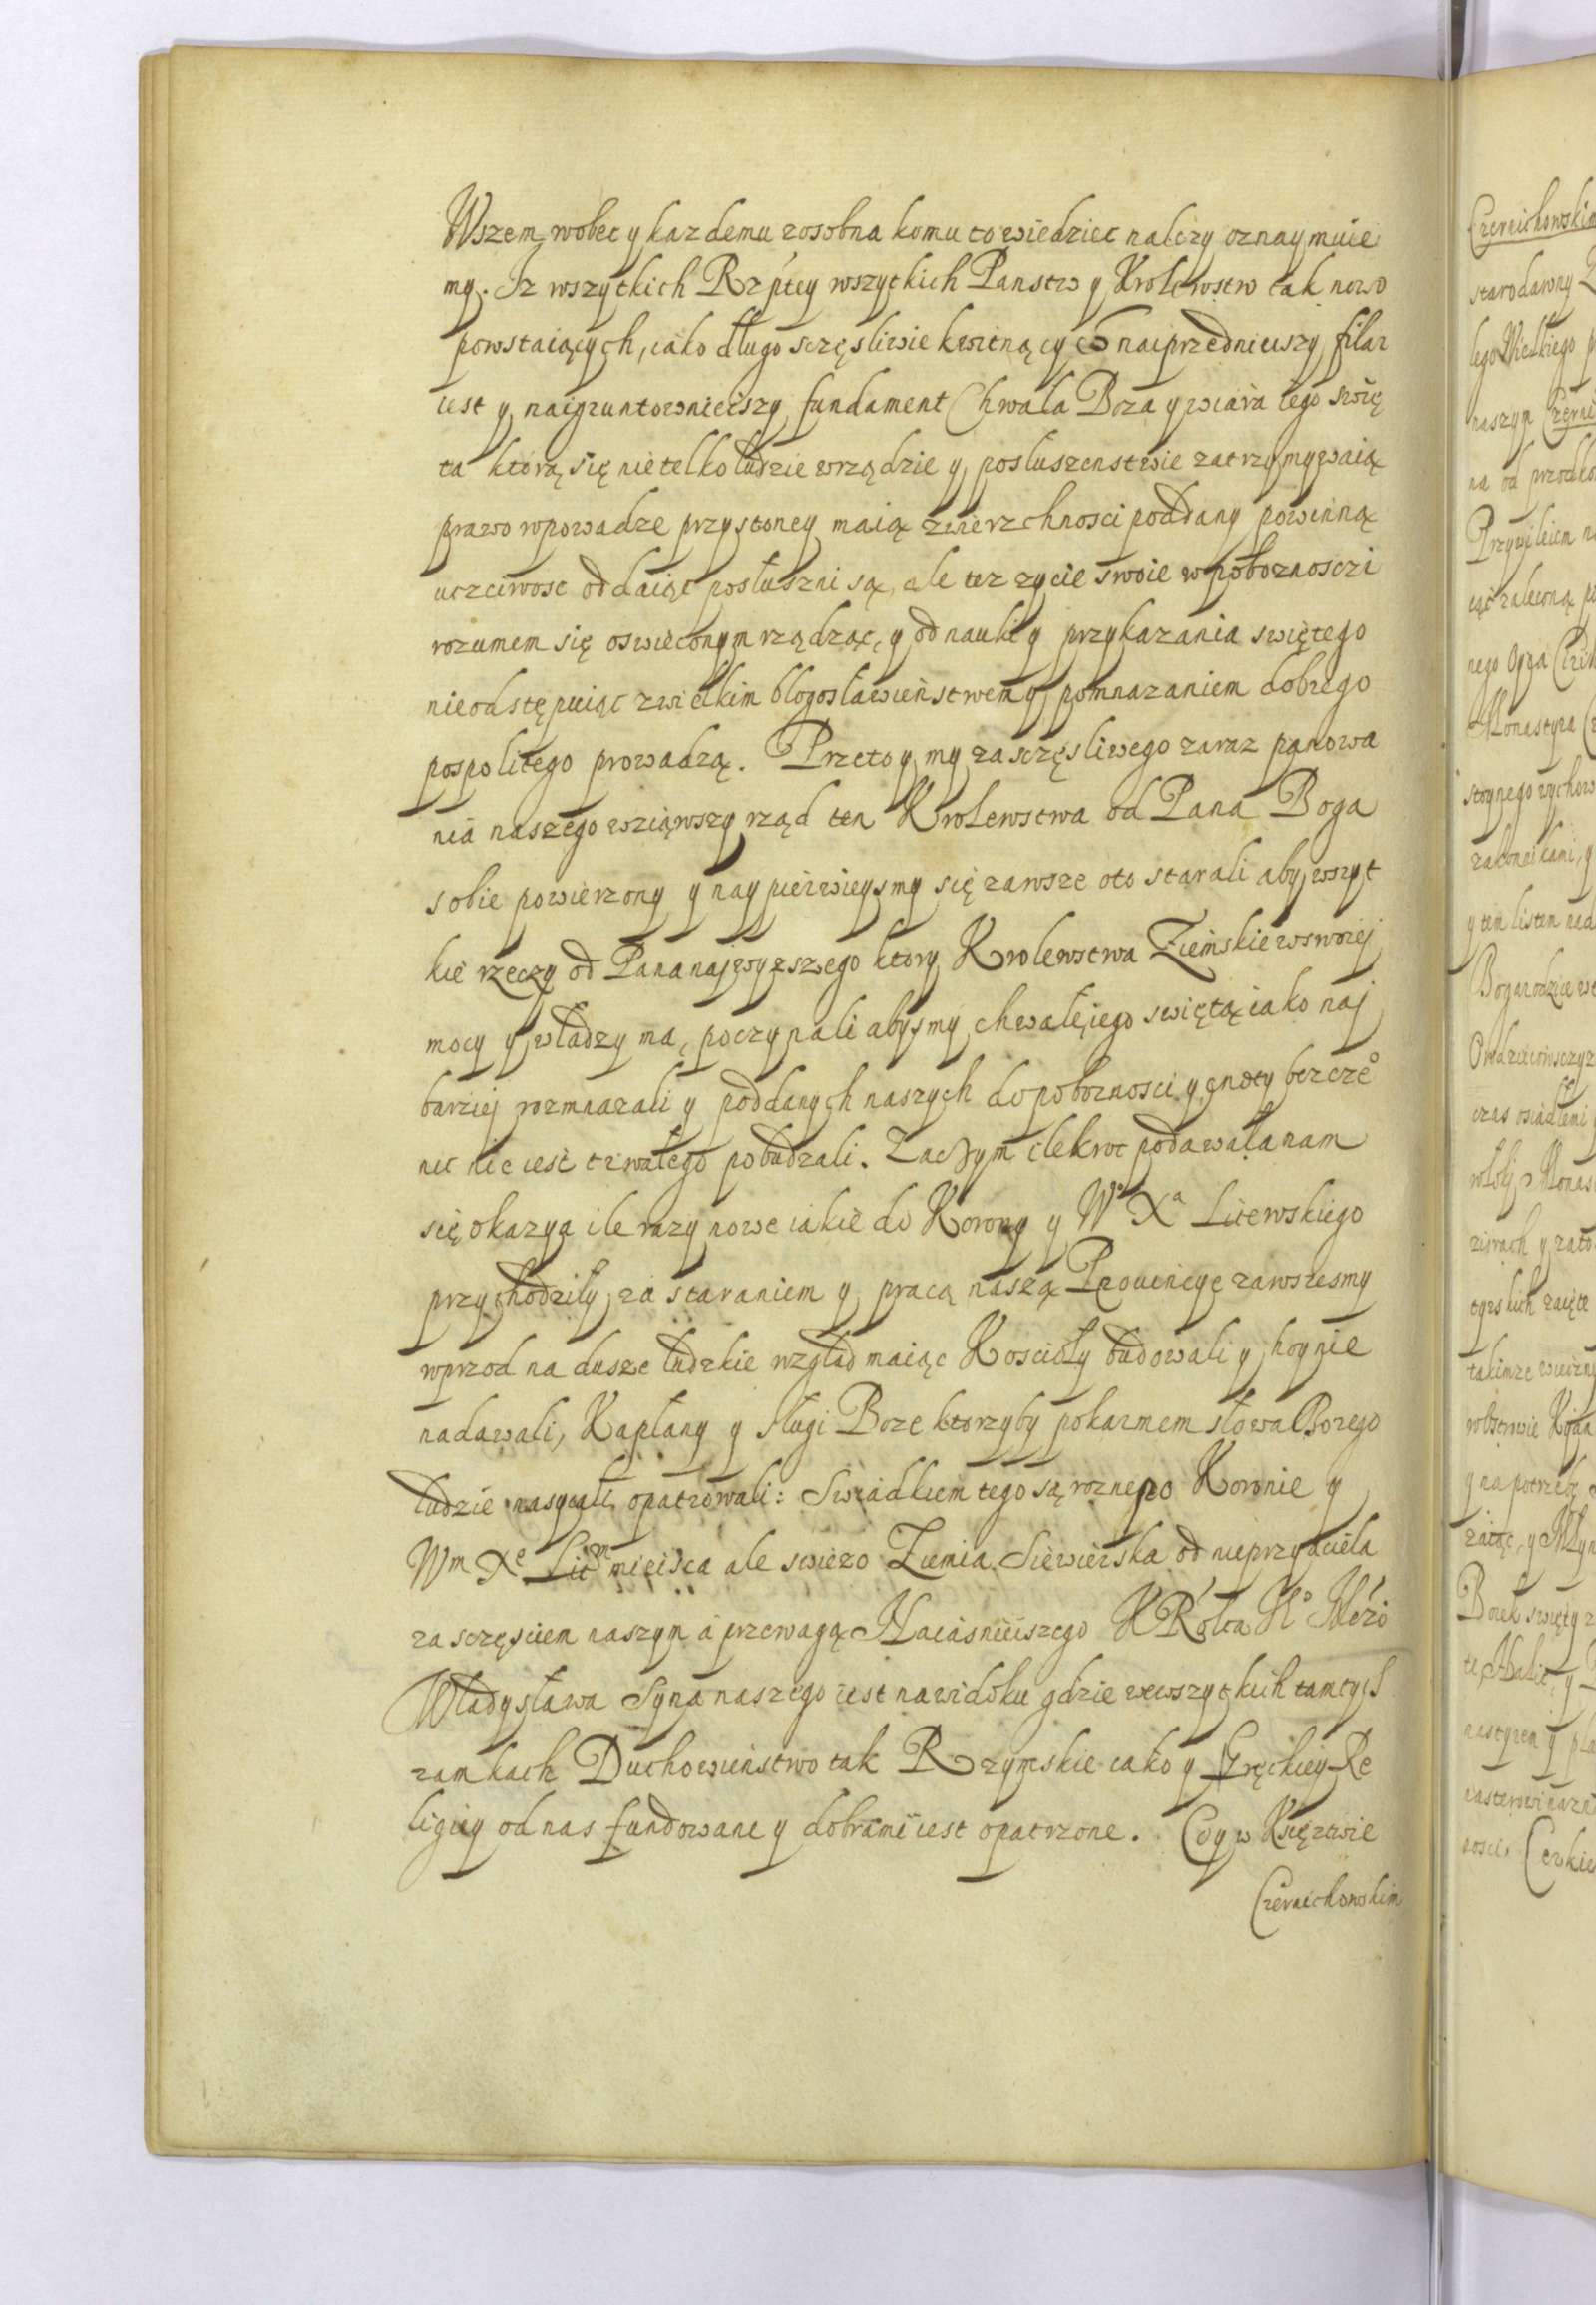 Wszem wobec y kazdemu zosobna komu to wiedziec nalezy oznaymuie
my. Iz wszytkich Rzptey wszytkich Panstw y Krolewstw tak nowo
powstaiących, iako długo sczęsliwie kwitnących naiprzednieiszy filar
iest y naigruntownieiszy fundament Chwała Boza y wiara iego swię
ta którą się nie telko ludzie wrządzie y posluszenstwie zatrzymywaią
prawo wpowadze przystoney maią zwierzchnosci poddany powinną
uczciwosc oddaiąc posłuszni są, ale tez zycie swoie wpoboznosczi
rozumem się oswieconym rządząc, y od nauki y przykazania swiętego
nieodstępuiąc zwielkim błogosławieństwem y pomnazaniem dobrego
pospolitego prowadzą. Przeto y my za sczęsliwego zaraz panowa
nia naszego wziąwszy rząd ten Krolewstwa od Pana Boga
sobie powierzony y naypierwieysmy się zawsze oto starali aby wszyt
kie rzeczy od Pana najwyzszego ktory Krolewstwa Ziemskie wswoiej
mocy y władzy ma, poczynali abysmy chwałę iego swiętą iako naj
barziej rozmnazali y poddanych naszych do poboznosci y cnoty bez czeo
nic nie iest trwałego pobudzali. Zaczym ilekroc podawała nam
się okazya ile razy nowe iakie do Korony y Wo Xa Litewskiego
przychodziły za staraniem y pracą naszą Prouincye zawszesmy
wprzod na dusze ludzkie wzgląd maiąc Koscioły budowali y hoynie
nadawali, Kapłany y sługi Boze ktorzyby pokarmem słowa Bozego
ludzie nasycali opatrowali: Swiadkiem tego są rozne po Koronie y
Wm Xe Litm mieisca ale swiezo Ziemia Siewierska od nieprzyiaciela
za sczęsciem naszym a przewagą Naiasnieiszego KRolca
Władysława Syna naszego iest nawidoku gdzie wewszytkich tamtych
zamkach Duchowienstwo tak Rzymskie iako y Greckiey Re
ligiey od nas fundowane y dobrami iest opatrzone. Coy w Księztwie
Czernichowskim